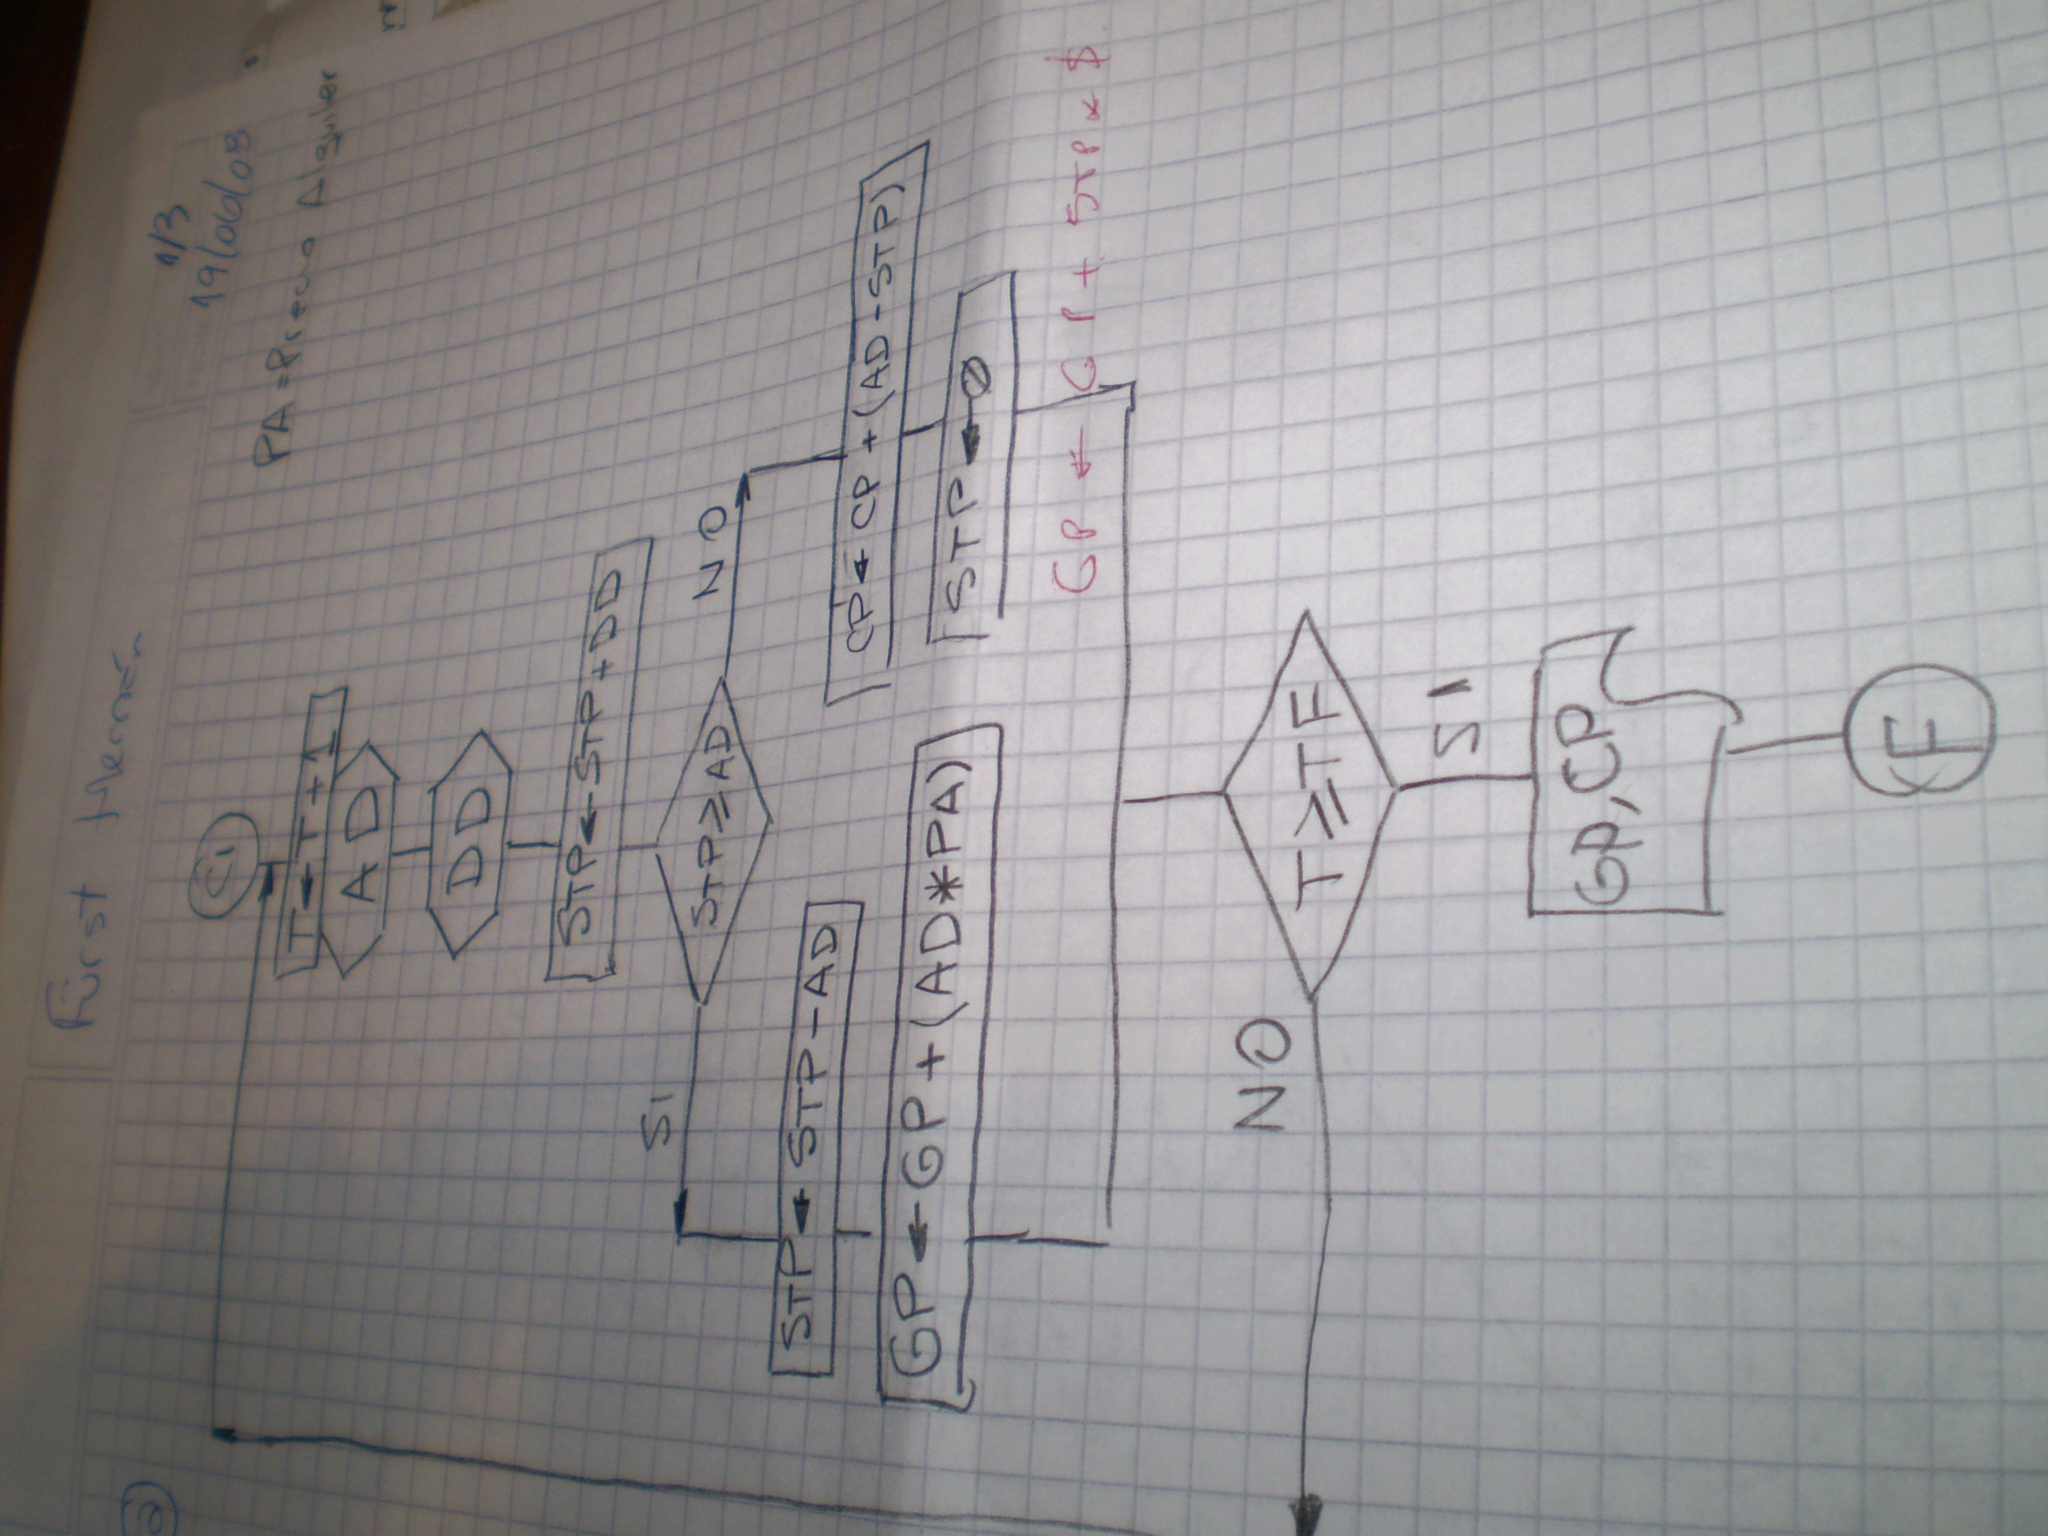 Fürst Hernán
1/3
19/06/08
PA=Precio Alquiler
a)
CI
T←T+1
AD
DD
STP←STP+DD
STP≥AD
SI
NO
STP←STP-AD
GP←GP+(AD*PA)
CP←CP+(AD-STP)
STP←Ø
GP ← GP + STP * $
T≥TF
NO
SI
GP,CP
F